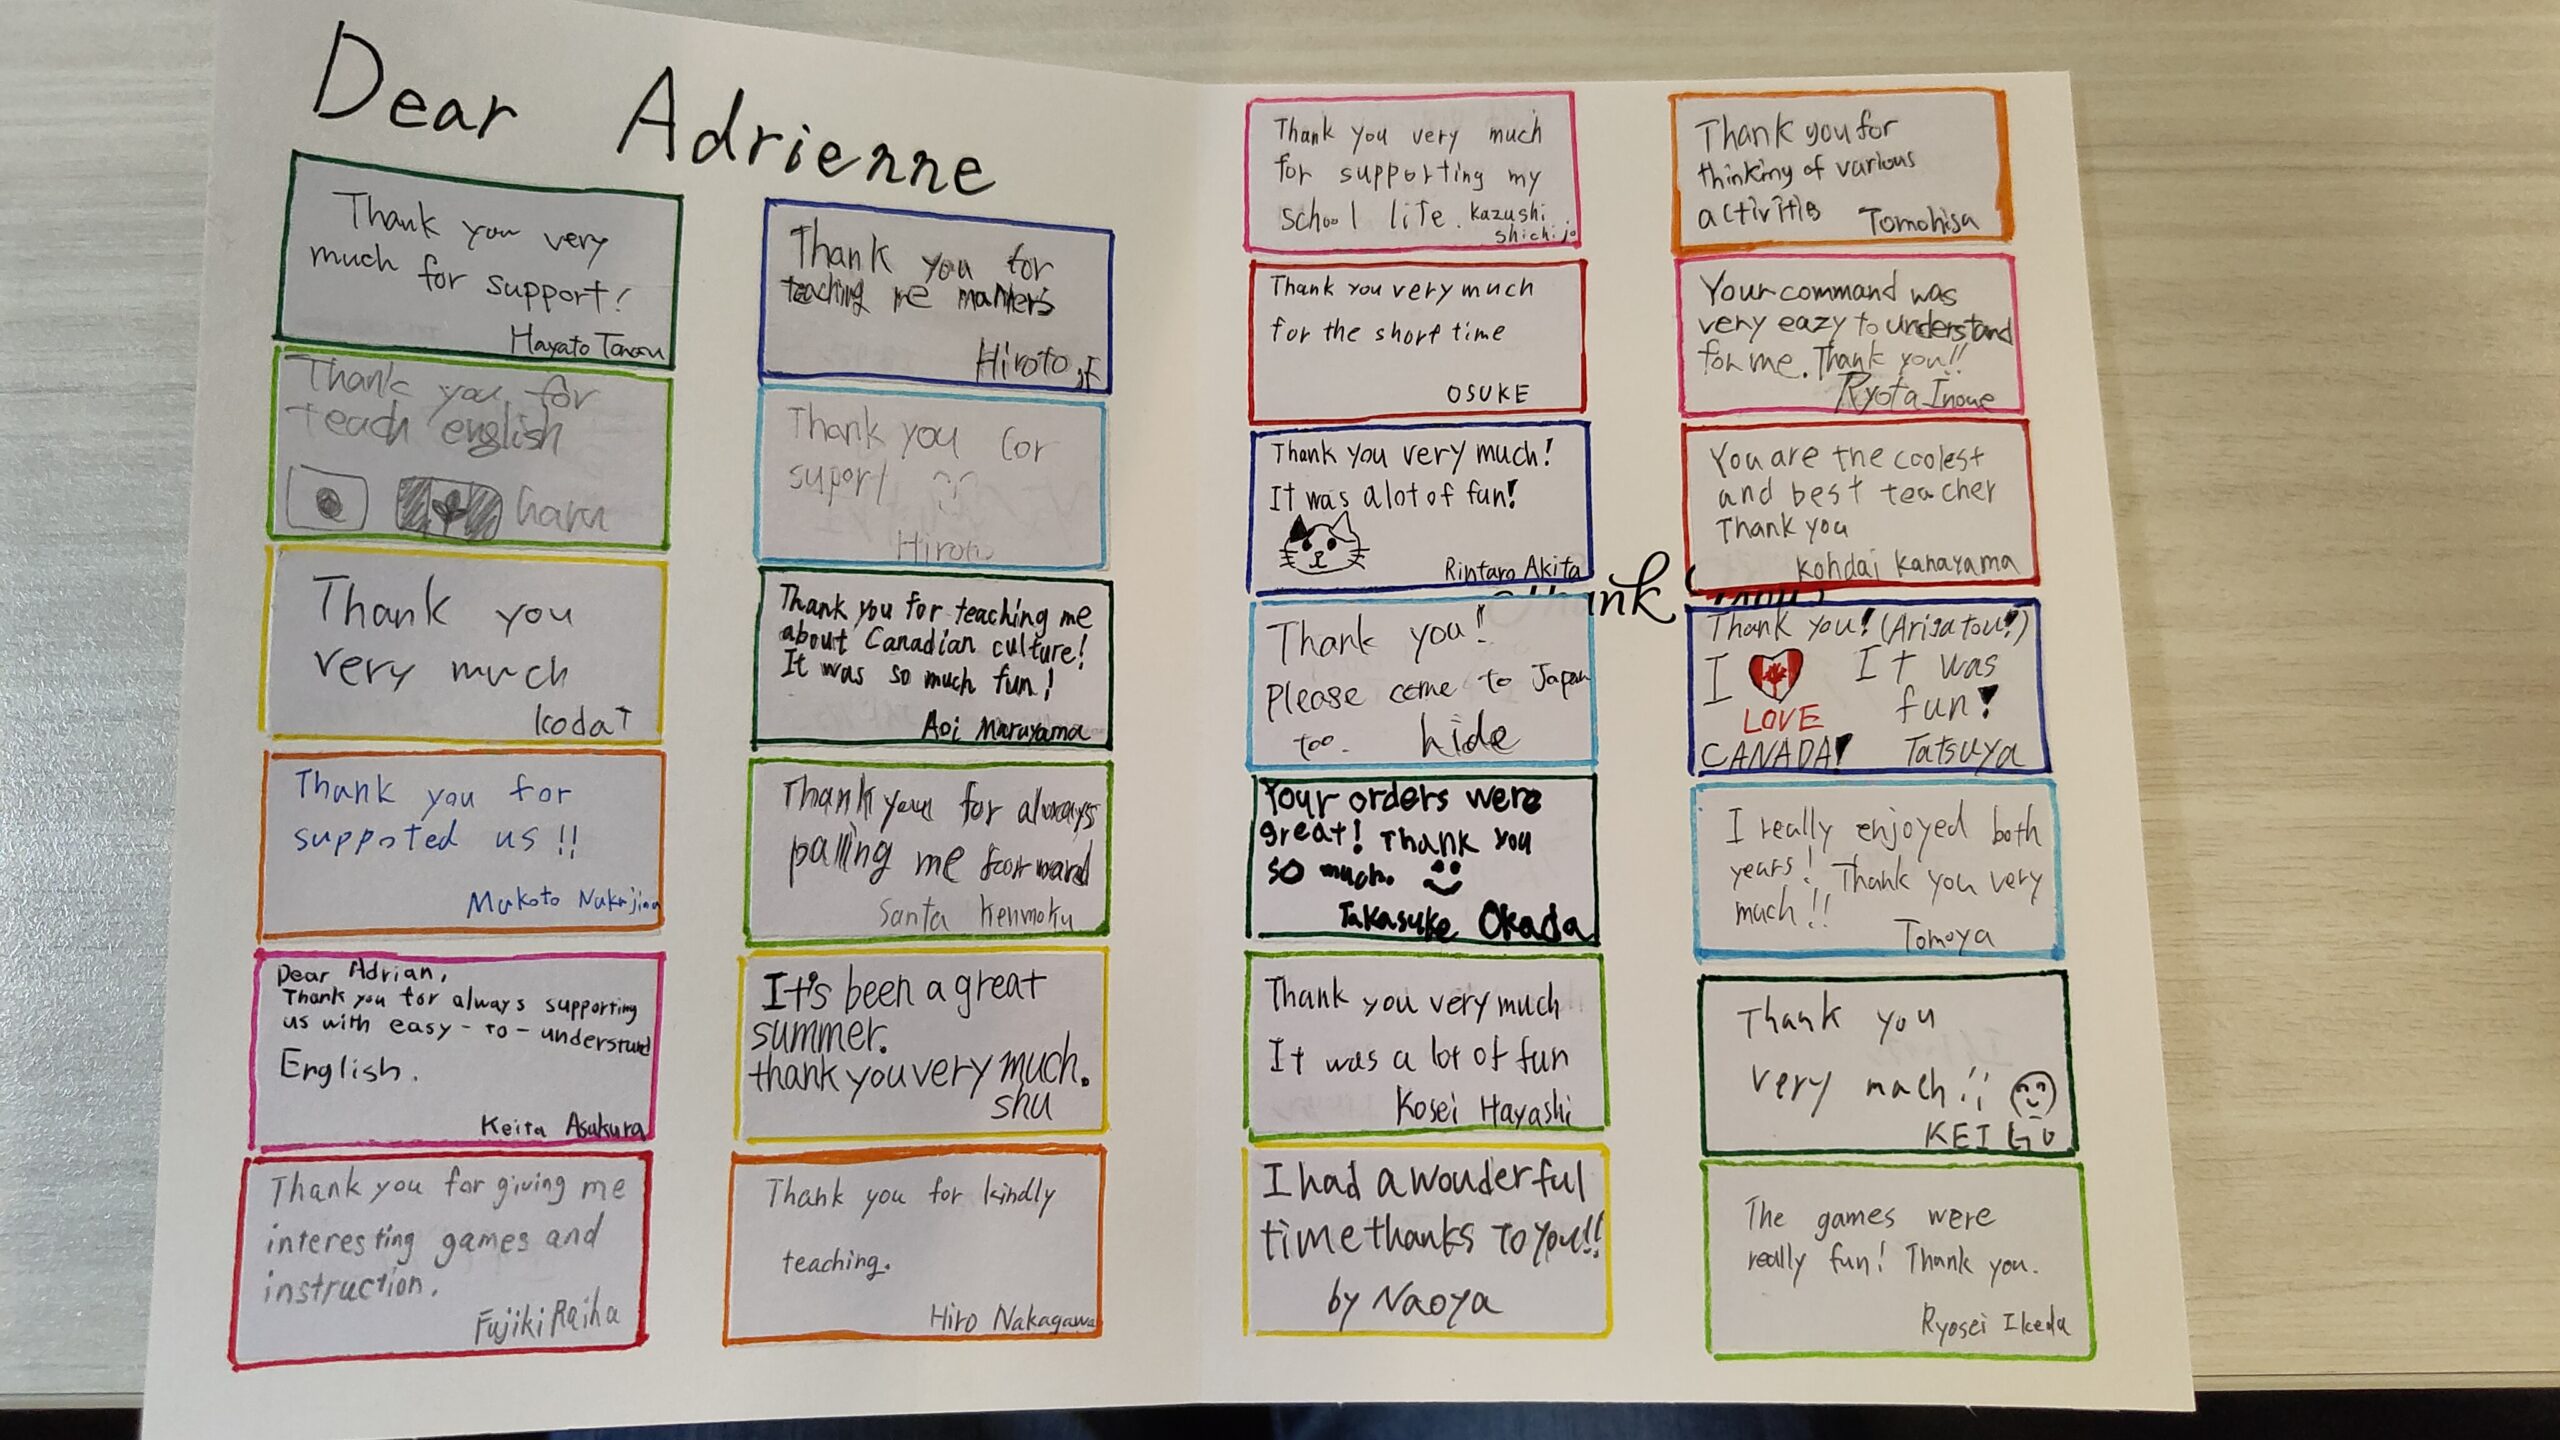 Dear Adrienne
Thank you very
much for support!
Hayato
Thank you for
teach english
haru
Thank you
very much
Kodai
Thank you for
suppoted us!!
Makoto Nakajima
Dear Adrian,
Thank you for always supporting
us with easy-to-understand
English.
Keita Asakura
Thank you for giving me
interesting games and
instruction.
Fujiki Raiha
Thank you for
teaching me manners
Hiroto
Thank you for
suport
Hiroto
Thank you for teaching me
about Canadian culture!
It was so much fun!
Aoi Maruyama
Thank you for always
palling me forward
Santa Kenmoku
It's been a great
summer.
thank you very much.
shu
Thank you for kindly
teaching.
Hiro Nakagawa
Thank you very much
for supporting my
school life. Kazushi
shichijo
Thank you very much
for the short time
OSUKE
Thank you very much!
It was a lot of fun!
Rintaro Akita
Thank you!!
please come to Japan
too. hide
Your orders were
great! Thank you
so much.
Takasuke Okada
Thank you very much
It was a lot of fun
Kosei Hayashi
I had a wonderful
time thanks to you!!
by Naoya
Thank you for
thinking of various
activities Tomohisa
Your command was
very eazy to understand
for me. Thank you!!
Ryota Inoue
You are the coolest
and best teacher
Thank you
Kohdai Kanayama
Thank you! (Arigatou!)
I It was
LOVE fun!
CANADA! Tatsuya
I really enjoyed both
years! Thank you very
much!!
Tomoya
Thank you
very mach!!
KEIGO
The games were
really fun! Thank you.
Ryosei Ikeda